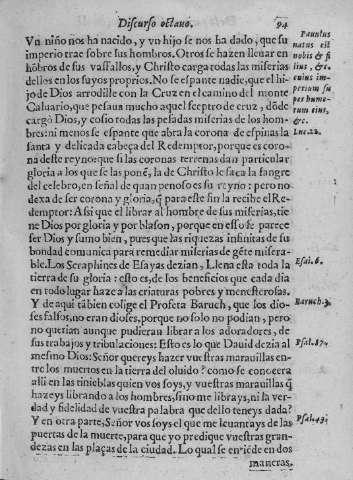 Discurso octauo. 94
Vn niño nos ha nacido, y vn hijo se nos ha dado, que su
imperio trae sobre sus hombros. Otros se hazen lleuar en
hōbros de sus vassallos, y Christo carga todas las miserias
dellos en los suyos proprios. No se espante nadie, que el hi-
jo de Dios arrodille con la Cruz en el camino del monte
Caluario, que pesaua mucho aquel sceptro de cruz, dōde
cargò Dios, y cosio todas las pesadas miserias de los hom-
bres: ni menos se espante que abra la corona de espinas la
santa y delicada cabeça del Redemptor, porque es coro-
na deste reyno: que si las coronas terrenas dan particular
gloria a los que se las ponē, la de Christo le saca la sangre
del celebro, en señal de quan penoso es su reyno: pero no
dexa de ser corona y gloria, q̃ para este fin la recibe el Re-
demptor: Asi que el librar al hombre de sus miserias, tie
ne Dios por gloria y por blason, porque en esso se parece
ser Dios y sumo bien, pues que las riquezas infinitas de su
bondad comunica para remediar miserias de gēte misera-
ble. Los Seraphines de Esayas dezian, Llena esta toda la
tierra de su gloria: esto es, de los beneficios que cada dia
en todo lugar haze a las criaturas pobres y menesterosas.
Y de aqui tābien colige el Profeta Baruch, que los dio-
ses falsos, no eran dioses, porque no solo no podian, pero
no querian aunque pudieran librar a los adoradores, de
sus trabajos y tribulaciones: Esto es lo que Dauid dezia al
mesmo Dios: Señor quereys hazer vuestras marauillas en-
tre los muertos en la tierra del oluido? como se conocera
alli en las tinieblas quien vos soys, y vuestras marauillas q̃
hazeys librando a los hombres, sino me librays, ni la ver-
dad y fidelidad de vuestra palabra que dello teneys dada?
Y en otra parte, Señor vos soys el que me leuantays de las
puertas de la muerte, para que yo predique vuestras gran-
dezas en las plaças de la ciudad. Lo qual se entiēde en dos
maneras,
Paruulus
natus est
nobis & fi
lius, &c.
cuius im-
perium su
per hume-
rum eius,
&c.
Luc. 22.
Esai. 6.
Baruch. 3.
Psal. 87.